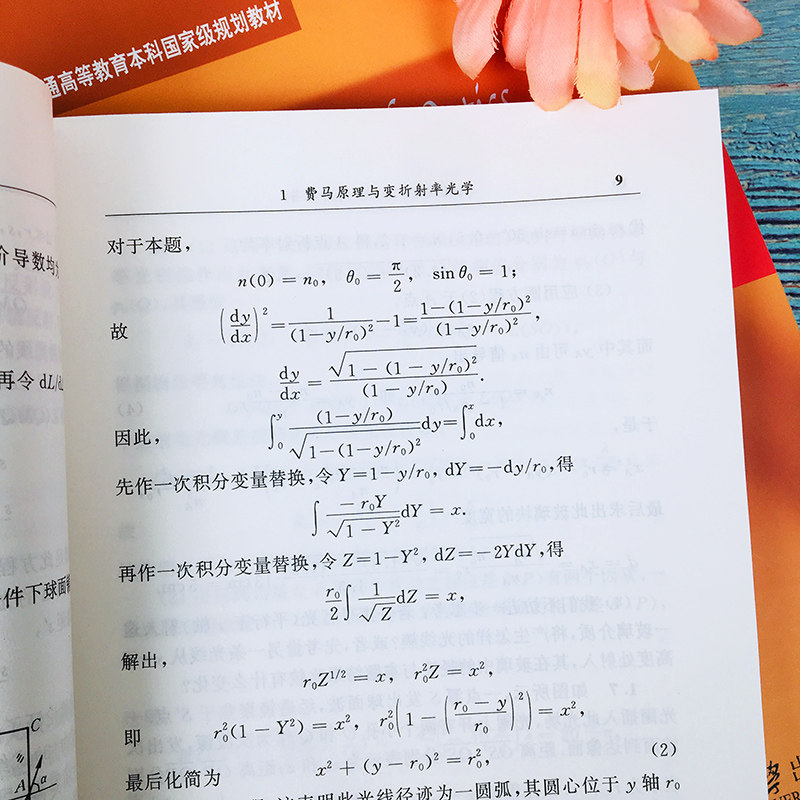 通高等教育本科国家级规划教材
1 费马原理与变折射率光学 9
对于本题，
n(0) = n₀, θ₀ = π/2, sin θ₀ = 1;
故 (dy/dx)² = 1/(1-y/r₀)² - 1 = (1-(1-y/r₀)²)/(1-y/r₀)²,
dy/dx = √(1 - (1 - y/r₀)²)/(1 - y/r₀).
因此， ∫₀^y (1-y/r₀)/√(1-(1-y/r₀)²) dy = ∫₀^x dx,
先作一次积分变量替换，令 Y=1-y/r₀, dY=-dy/r₀, 得
∫ -r₀Y/√(1 - Y²) dY = x.
再作一次积分变量替换，令 Z=1-Y², dZ=-2YdY, 得
r₀/2 ∫ 1/√Z dZ = x,
解出，
r₀Z^{1/2} = x, r₀²Z = x²,
即 r₀²(1 - Y²) = x², r₀²(1 - ((r₀ - y)/r₀)²) = x²,
最后化简为 x² + (y - r₀)² = r₀², (2)
此光线径迹为一圆弧，其圆心位于 y 轴 r₀
介导数均
再令 dL/d
件下球面
C
A
α